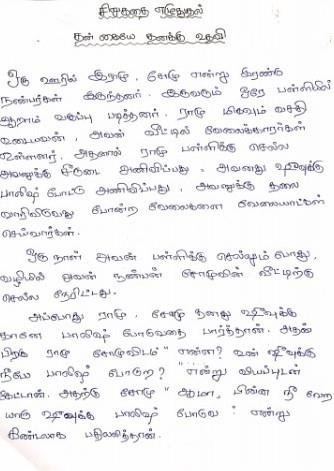 சிறுகதை எழுதுதல்
தன் கையே தனக்கு உதவி
ஒரு ஊரில் இராமு, சோமு என்று இரண்டு
நண்பர்கள் இருந்தனர். இருவரும் ஒரே பள்ளியில்
ஆறாம் வகுப்பு படித்தனர். ராமு மிகவும் வசதி
உடையவன், அவன் வீட்டில் வேலைக்காரர்கள்
உள்ளனர், அதனால் ராமு பள்ளிக்கு செல்ல
அவனுக்கு சீருடை அணிவிப்பது, அவனது ஷூவுக்கு
பாலிஷ் போட்டு அணிவிப்பது, அவனுக்கு தலை
வாரிவிடுவது போன்ற வேலைகளை வேலையாட்கள்
செய்வார்கள்.
ஒரு நாள் அவன் பள்ளிக்கு செல்லும் போது,
வழியில் அவன் நண்பன் சோமுவின் வீட்டிற்கு
செல்ல நேரிட்டது.
அப்போது ராமு, சோமு தனது ஷீவுக்கு
தானே பாலிஷ் போடுவதை பார்த்தான். அதன்
பிறகு ராமு சோமுவிடம் "என்ன? உன் ஷீவுக்கு
நீயே பாலிஷ் போடுற?" என்று வியப்புடன்
கேட்டான். அதற்கு சோமு "ஆமா, பின்ன நீ வேற
யாரு ஷீவுக்கு பாலிஷ் போடுவ? என்று
கிண்டலாக பதிலளித்தான்.